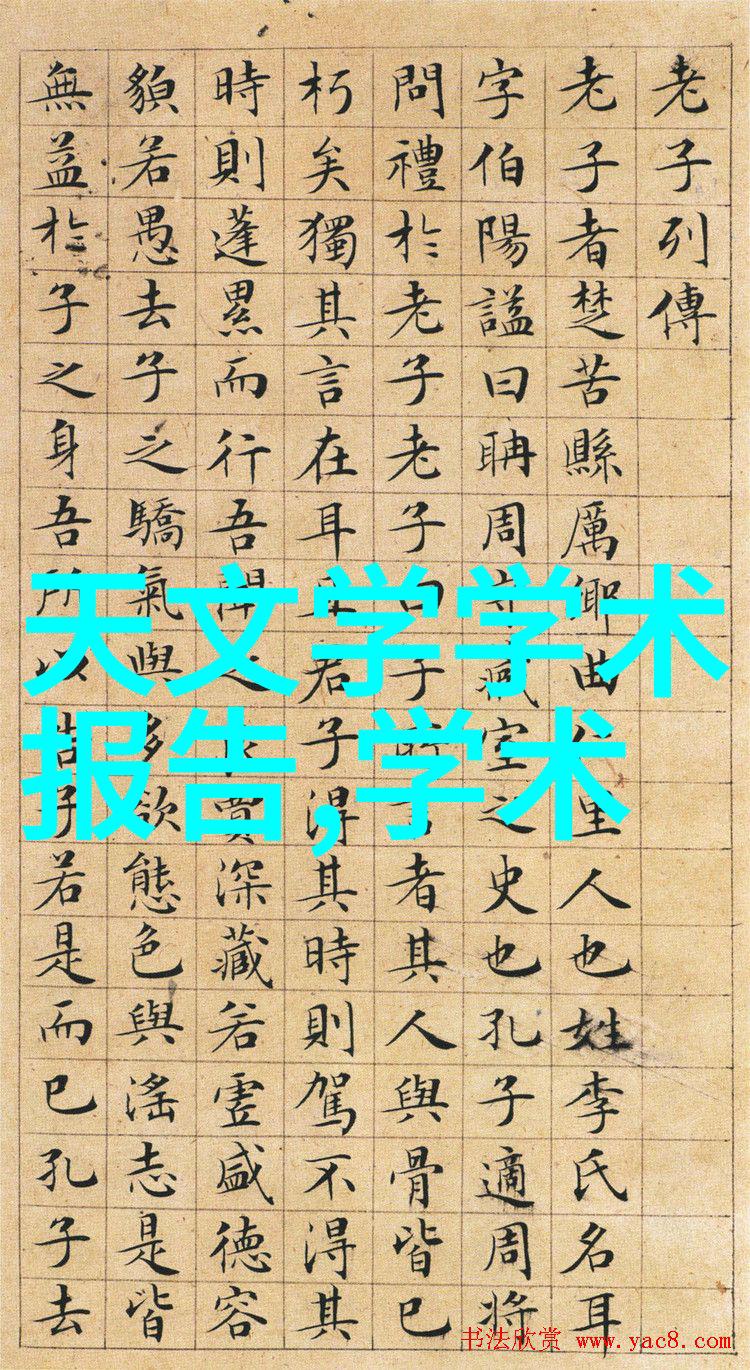 老子列傳
老子者楚苦縣厲鄉曲仁里人也姓李氏名耳
字伯陽謚曰聃周守藏室之史也孔子適周將
問禮於老子老子曰子所言者其人與骨皆已
朽矣獨其言在耳且君子得其時則駕不得其
時則蓬累而行吾聞之良賈深藏若虛盛德容
貌若愚去子之驕氣與多欲態色與淫志是皆
無益於子之身吾所以告子若是而已孔子去
天文学学术
报告,学术
书法欣赏 www.yac8.com